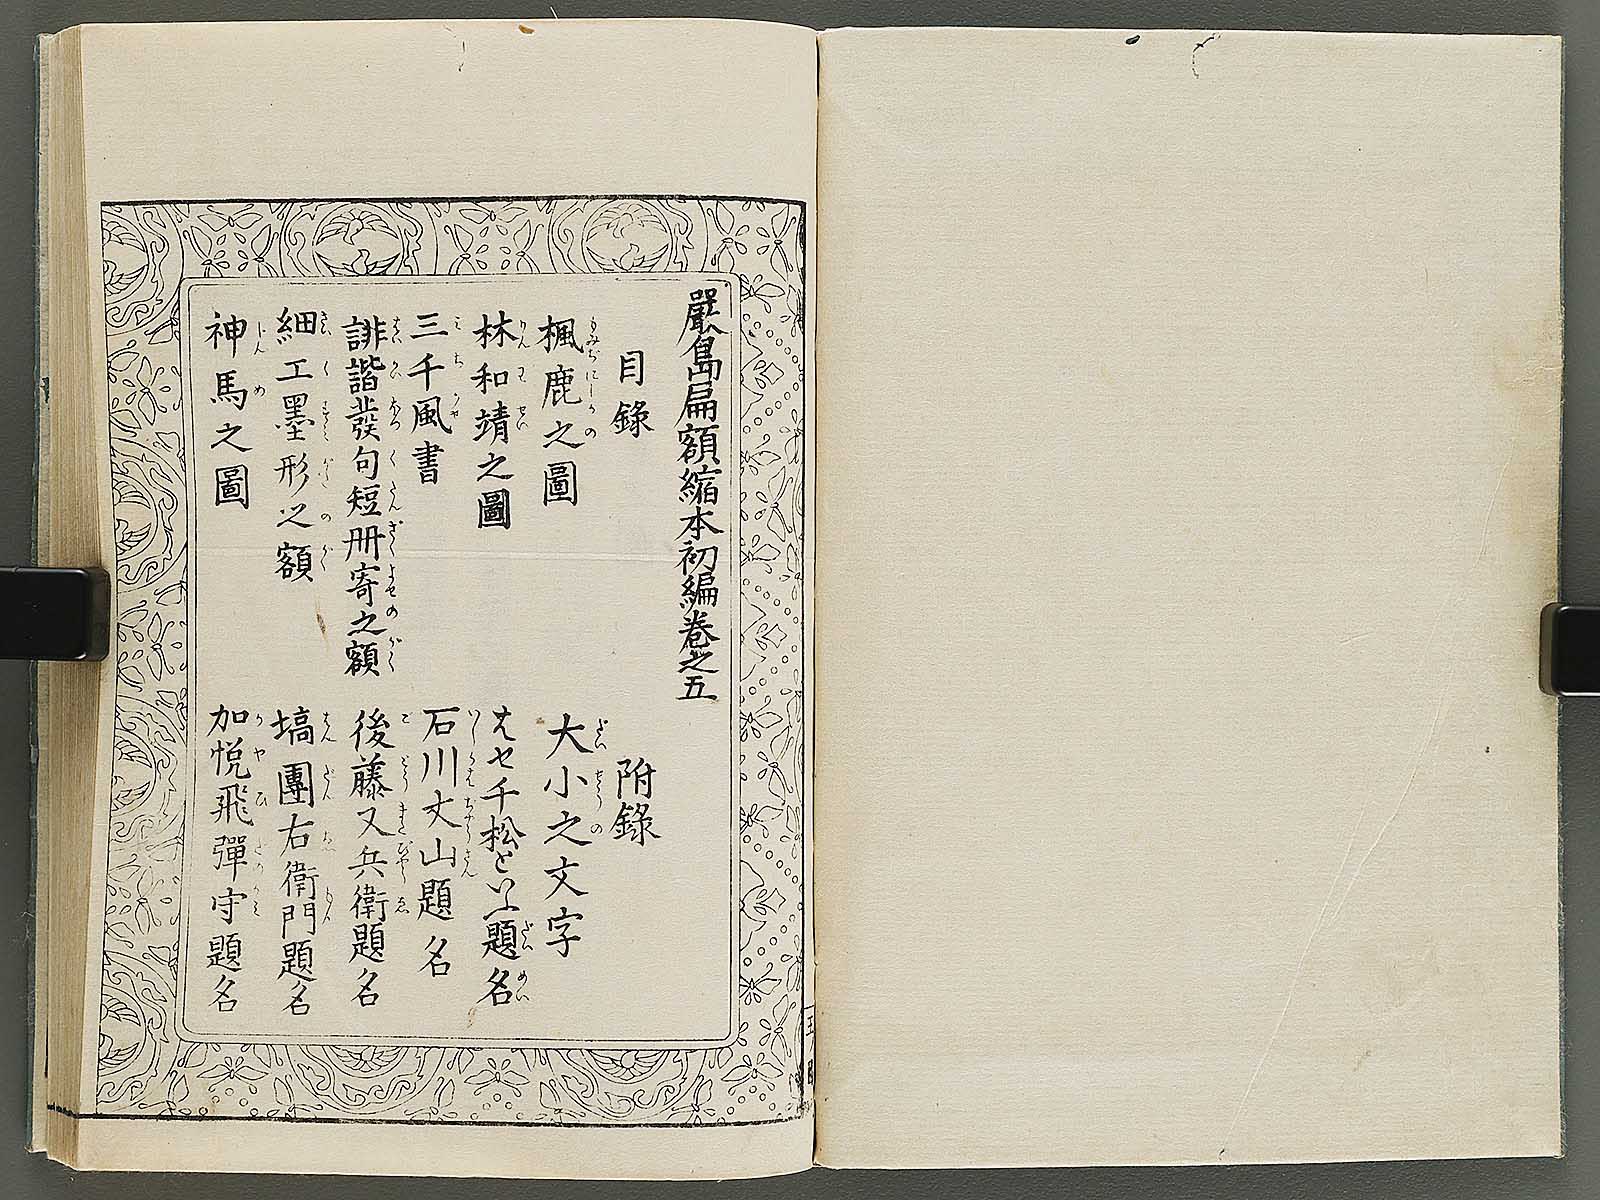 嚴島扁額縮本初編卷之五
目錄
楓鹿之圖
林和靖之圖
三千風書
誹諧發句短册寄之額
細工墨形之額
神馬之圖
附錄
大小之文字
七千松といふ題名
石川丈山題名
後藤又兵衛題名
塙團右衛門題名
加悦飛彈守題名